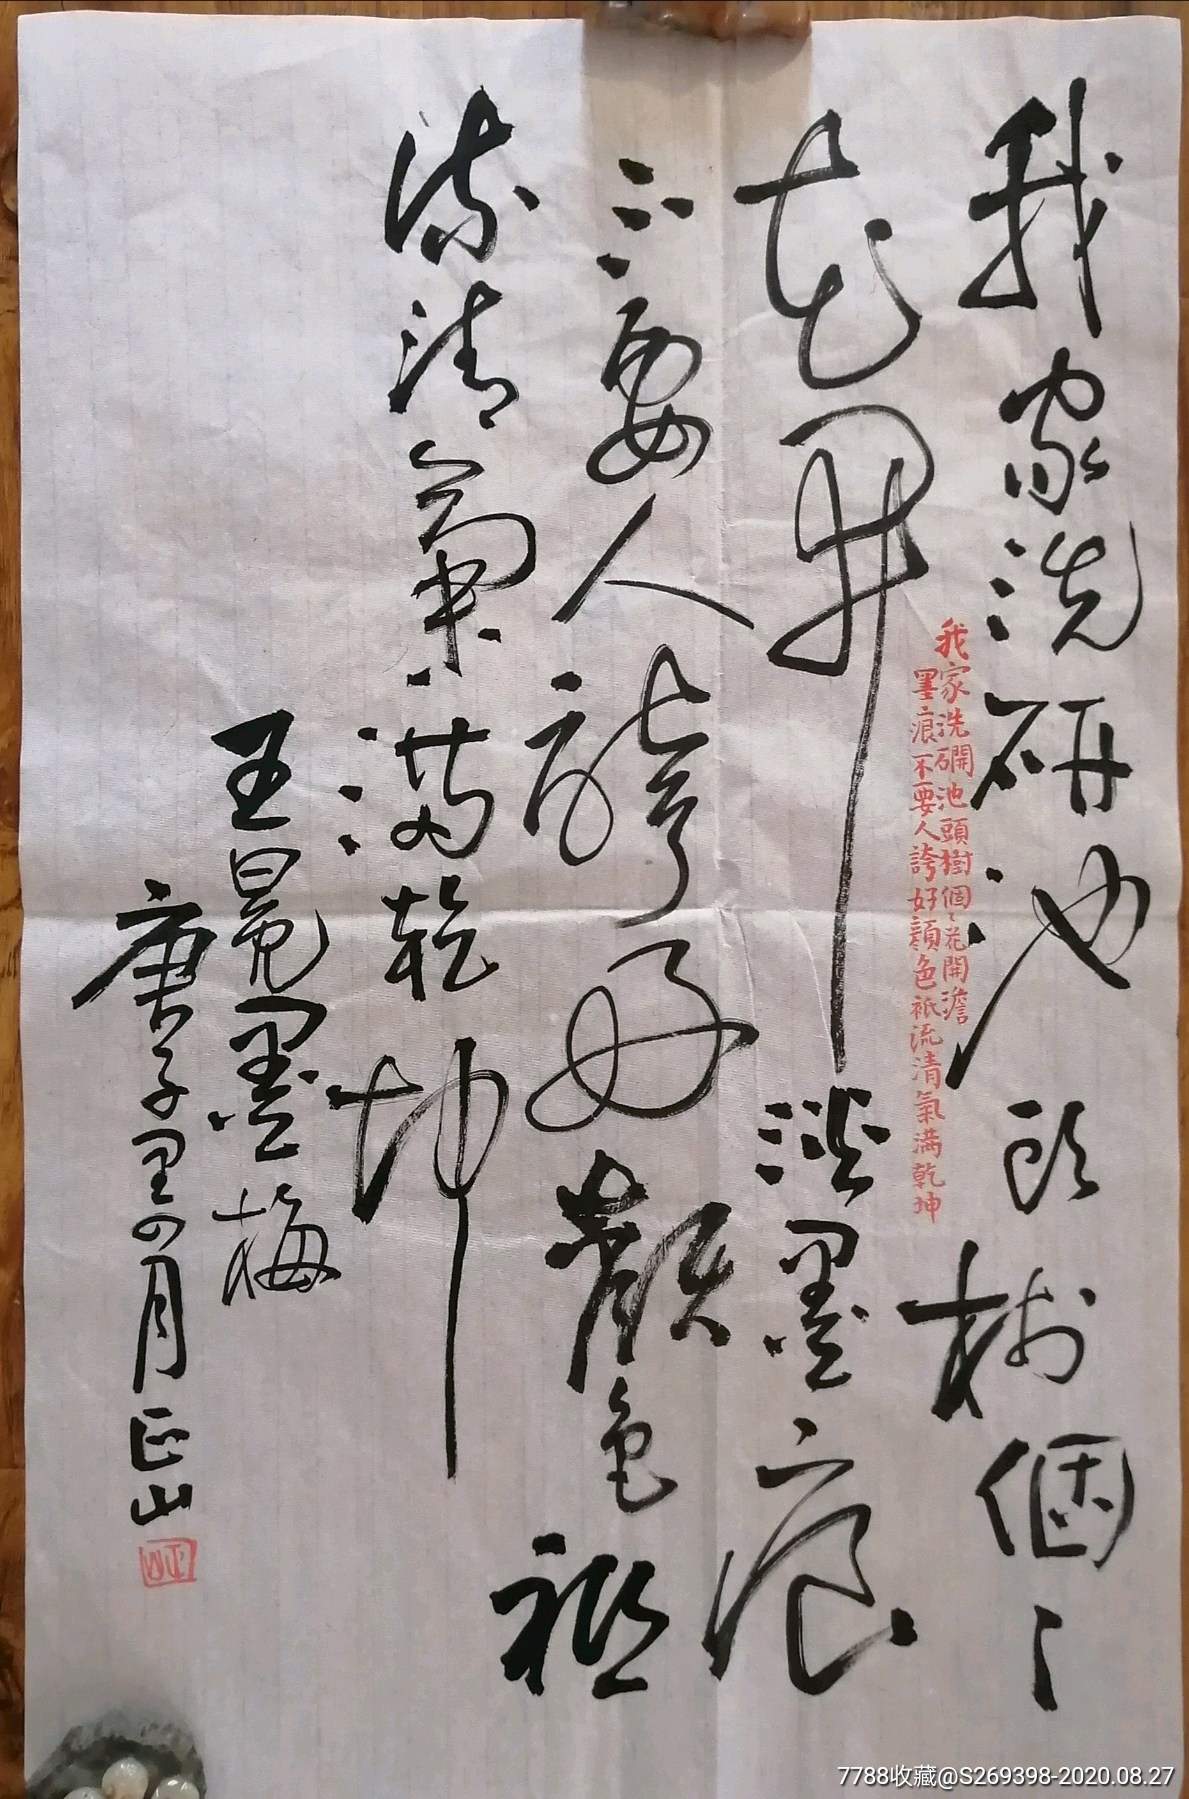 我家洗研池头树個〻
花开淡墨痕
不要人誇好颜色祗
流清氣满乾坤
王冕墨梅
庚子里四月正山
正山
我家洗硎池頭樹個〻花開澹
墨痕不要人誇好顔色祗流清氣满乾坤
7788收藏@S269398-2020.08.27